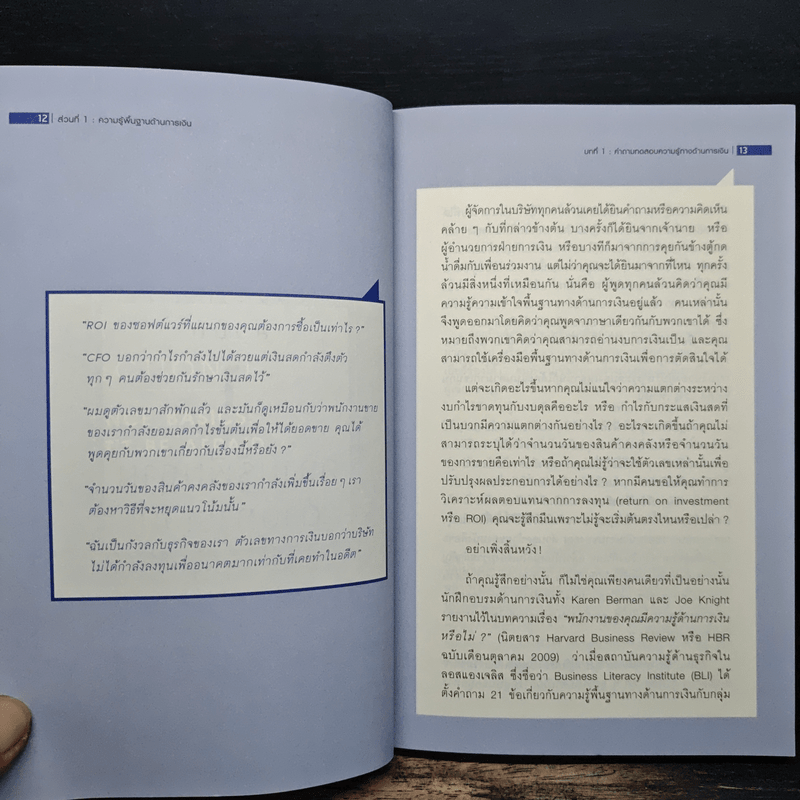 12 ส่วนที่ 1 : ความรู้พื้นฐานด้านการเงิน
"ROI ของซอฟต์แวร์ที่แผนกของคุณต้องการซื้อเป็นเท่าไร ?"
"CFO บอกว่ากำไรกำลังไปได้สวยแต่เงินสดกำลังตึงตัว
ทุก ๆ คนต้องช่วยกันรักษาเงินสดไว้"
"ผมดูตัวเลขมาสักพักแล้ว และมันก็ดูเหมือนกับว่าพนักงานขาย
ของเรากำลังยอมลดกำไรขั้นต้นเพื่อให้ได้ยอดขาย คุณได้
พูดคุยกับพวกเขาเกี่ยวกับเรื่องนี้หรือยัง ?"
"จำนวนวันของสินค้าคงคลังของเรากำลังเพิ่มขึ้นเรื่อย ๆ เรา
ต้องหาวิธีที่จะหยุดแนวโน้มนั้น"
"ฉันเป็นกังวลกับธุรกิจของเรา ตัวเลขทางการเงินบอกว่าบริษัท
ไม่ได้กำลังลงทุนเพื่ออนาคตมากเท่ากับที่เคยทำในอดีต"
บทที่ 1 : คำถามทดสอบความรู้ทางด้านการเงิน 13
ผู้จัดการในบริษัททุกคนล้วนเคยได้ยินคำถามหรือความคิดเห็น
คล้าย ๆ กับที่กล่าวข้างต้น บางครั้งก็ได้ยินจากเจ้านาย หรือ
ผู้อำนวยการฝ่ายการเงิน หรือบางทีก็มาจากการคุยกันข้างตู้กด
น้ำดื่มกับเพื่อนร่วมงาน แต่ไม่ว่าคุณจะได้ยินมาจากที่ไหน ทุกครั้ง
ล้วนมีสิ่งหนึ่งที่เหมือนกัน นั่นคือ ผู้พูดทุกคนล้วนคิดว่าคุณมี
ความรู้ความเข้าใจพื้นฐานทางด้านการเงินอยู่แล้ว คนเหล่านั้น
จึงพูดออกมาโดยคิดว่าคุณพูดจาภาษาเดียวกันกับพวกเขาได้ ซึ่ง
หมายถึงพวกเขาคิดว่าคุณสามารถอ่านงบการเงินเป็น และคุณ
สามารถใช้เครื่องมือพื้นฐานทางด้านการเงินเพื่อการตัดสินใจได้
แต่จะเกิดอะไรขึ้นหากคุณไม่แน่ใจว่าความแตกต่างระหว่าง
งบกำไรขาดทุนกับงบดุลคืออะไร หรือ กำไรกับกระแสเงินสดที่
เป็นบวกมีความแตกต่างกันอย่างไร ? อะไรจะเกิดขึ้นถ้าคุณไม่
สามารถระบุได้ว่าจำนวนวันของสินค้าคงคลังหรือจำนวนวัน
ของการขายคือเท่าไร หรือถ้าคุณไม่รู้ว่าจะใช้ตัวเลขเหล่านั้นเพื่อ
ปรับปรุงผลประกอบการได้อย่างไร ? หากมีคนขอให้คุณทำการ
วิเคราะห์ผลตอบแทนจากการลงทุน (return on investment
หรือ ROI) คุณจะรู้สึกมึนเพราะไม่รู้จะเริ่มต้นตรงไหนหรือเปล่า ?
อย่าเพิ่งสิ้นหวัง !
ถ้าคุณรู้สึกอย่างนั้น ก็ไม่ใช่คุณเพียงคนเดียวที่เป็นอย่างนั้น
นักฝึกอบรมด้านการเงินทั้ง Karen Berman และ Joe Knight
รายงานไว้ในบทความเรื่อง "พนักงานของคุณมีความรู้ด้านการเงิน
หรือไม่ ?" (นิตยสาร Harvard Business Review หรือ HBR
ฉบับเดือนตุลาคม 2009) ว่าเมื่อสถาบันความรู้ด้านธุรกิจใน
ลอสแองเจลิส ซึ่งชื่อว่า Business Literacy Institute (BLI) ได้
ตั้งคำถาม 21 ข้อเกี่ยวกับความรู้พื้นฐานทางด้านการเงินกับกลุ่ม